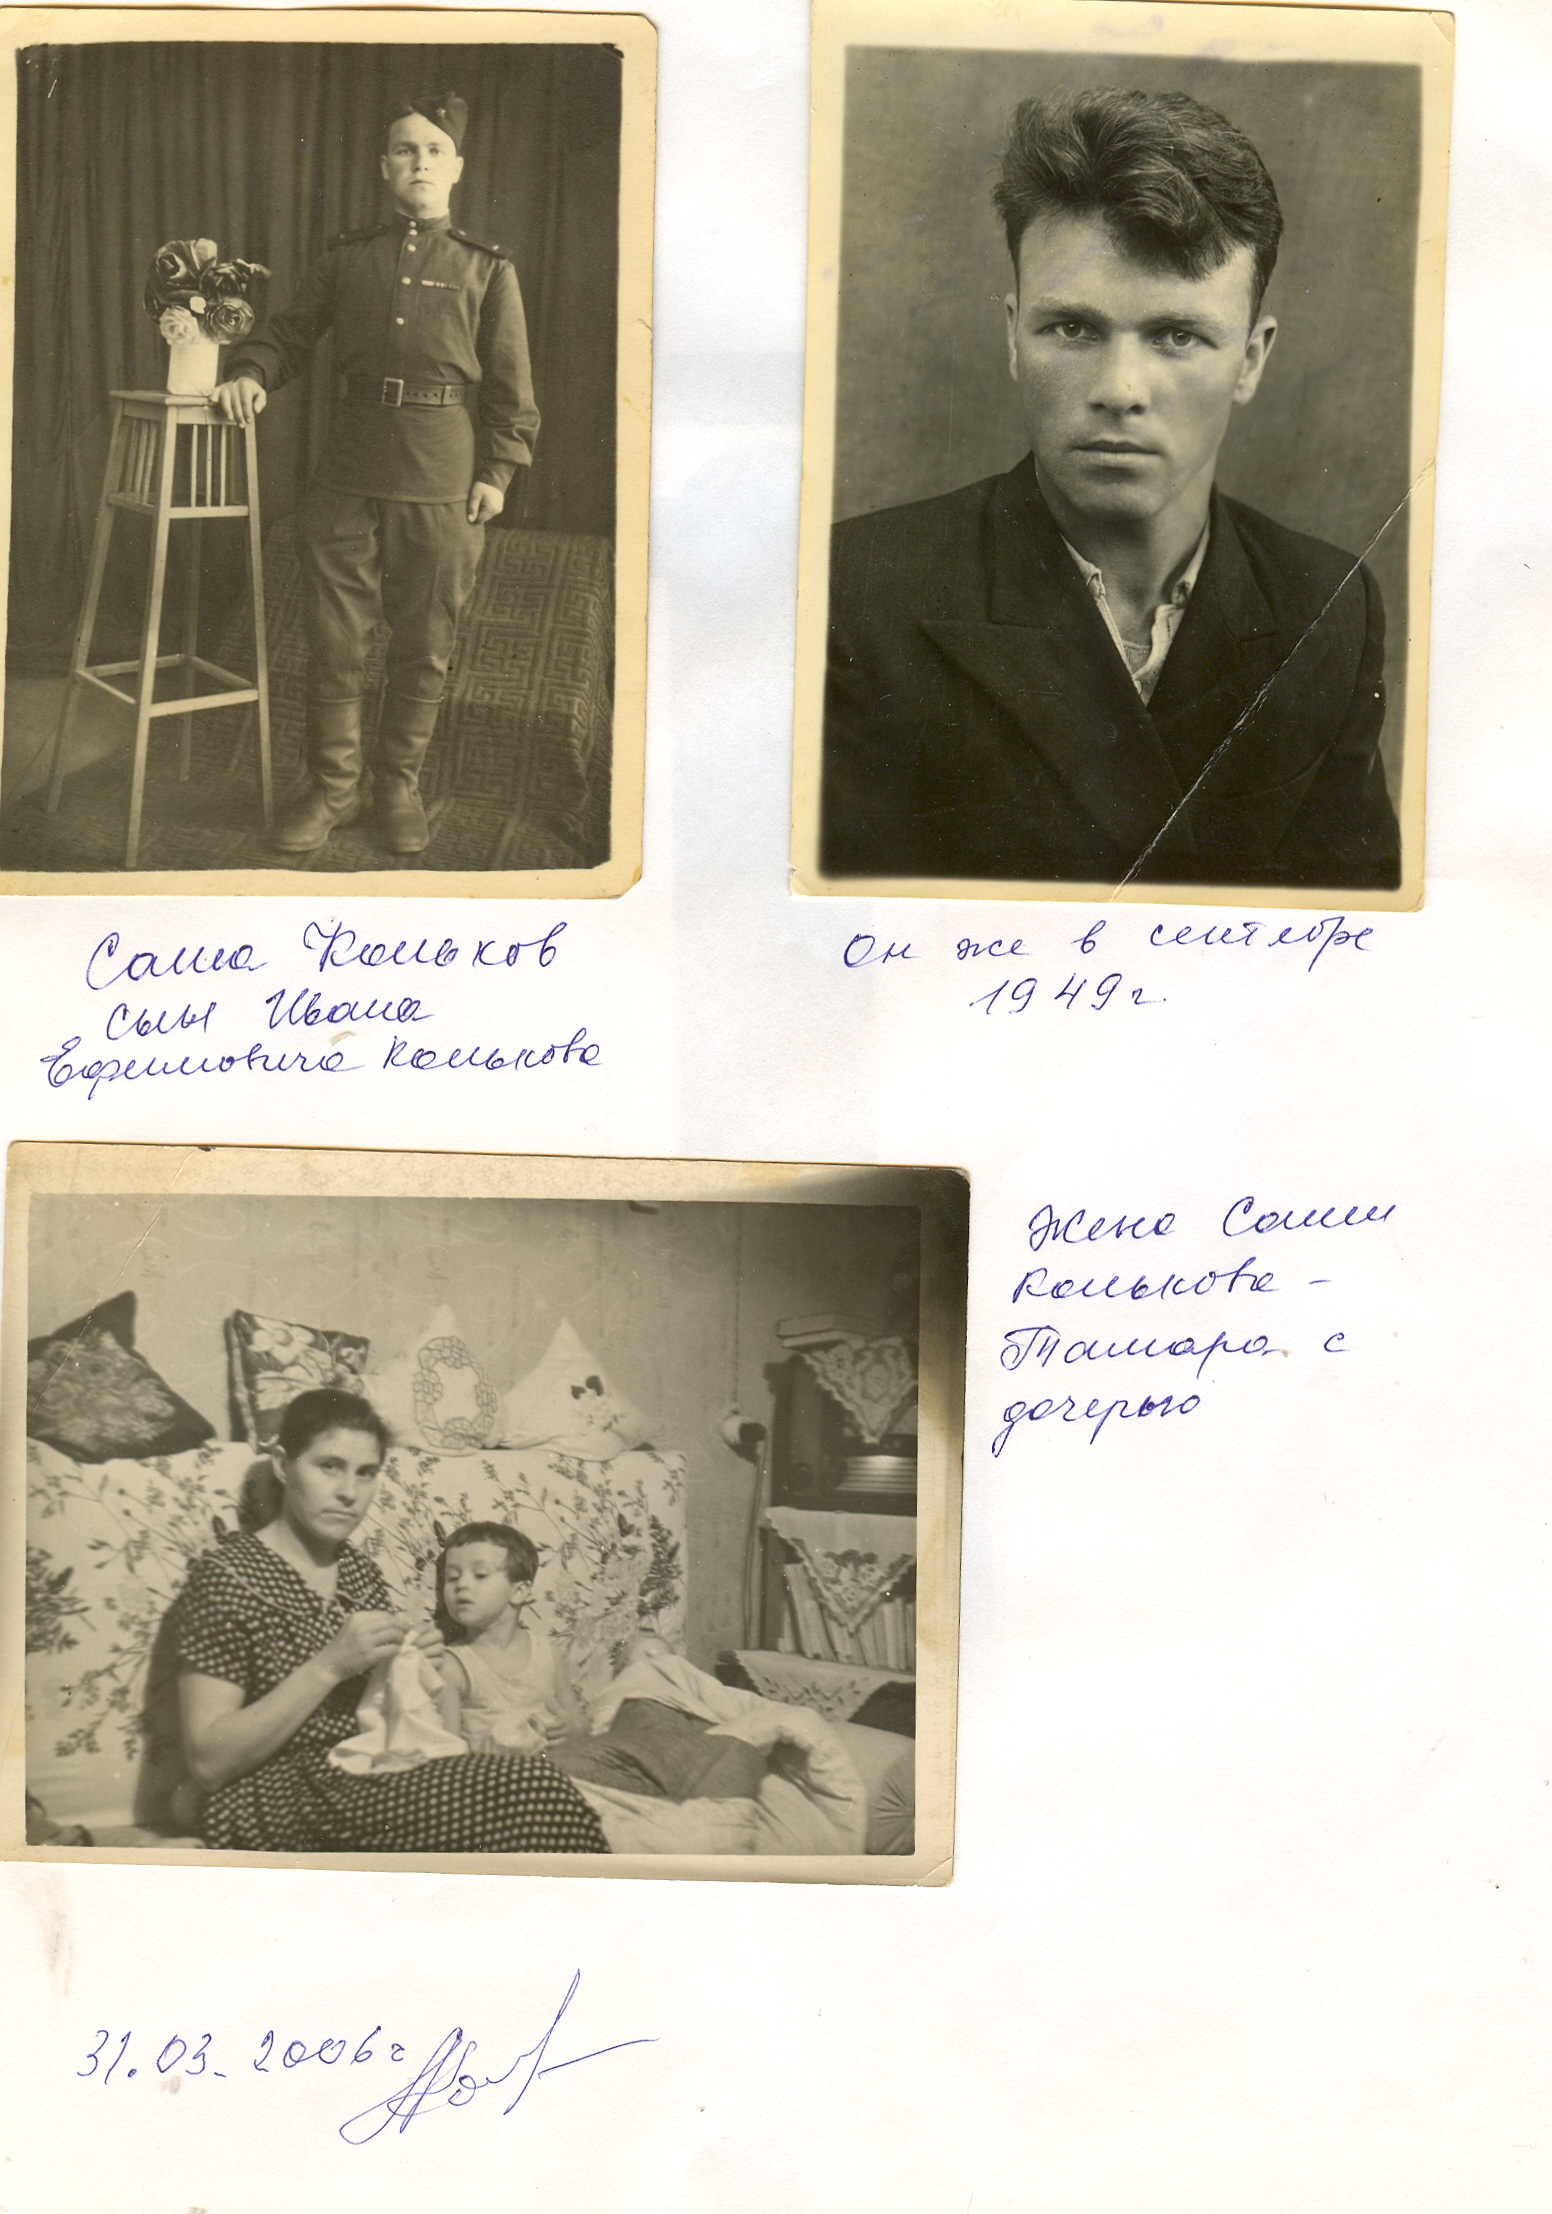 Саша Коньков
сын Ивана
Ефимовича Конькова
Он же в сентябре
1949 г.
Жена Саши
Конькова -
Тамара с
дочерью
31.03.2006 г